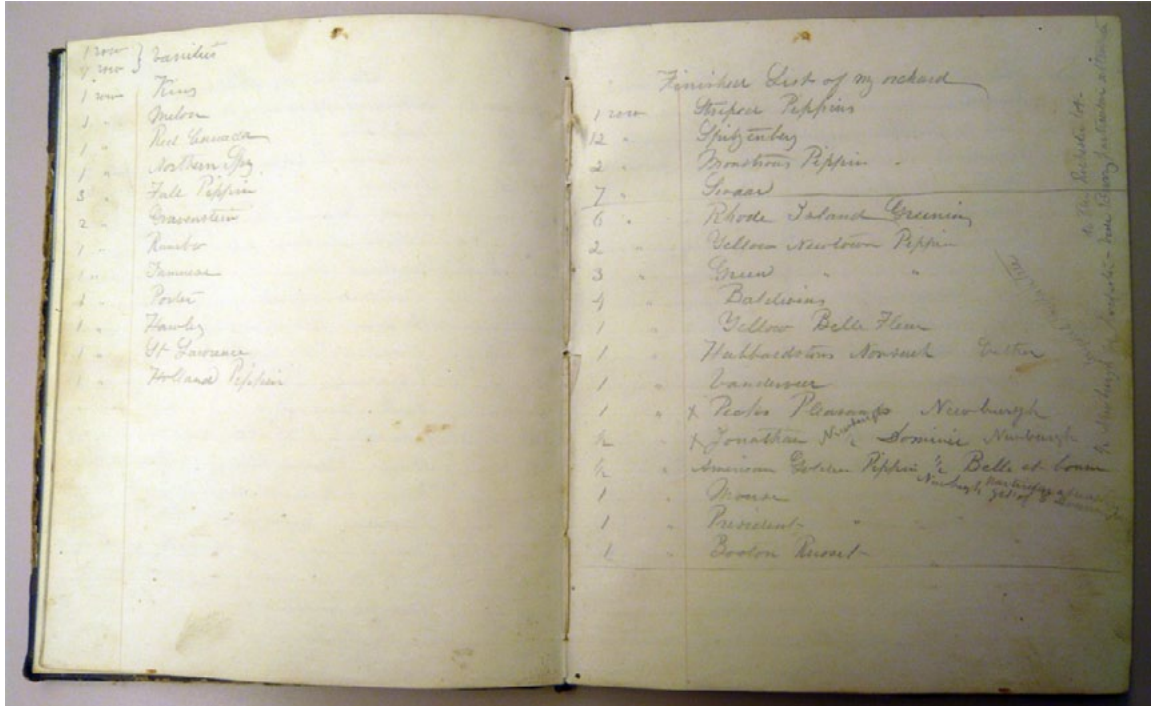 1 row } Varieties
row
1 row King
1 " Melon
1 " Red Canada
1 " Northern Spy
3 " Fall Pippin
2 " Gravenstein
1 " Rambo
1 " Fameuse
1 " Porter
1 " Hawley
1 " St Lawrence
1 " Holland Pippin
Finished List of my orchard
1 row Striped Pippins
12 " Spitzenberg
2 " Monstrous Pippin
7 " Swaar
6 " Rhode Island Greening
2 " Yellow Newtown Pippin
3 " Green " "
4 " Baldwins
1 " Yellow Belle Fleur
1 " Hubbardstons Nonsuch
1 " Vandeveer
1 " x Pecks Pleasant Newburgh
½ " x Jonathan Newburgh ½ Dominie Newburgh
½ " American Golden Pippin ½ Belle et bonne
Newburgh
1 " Mouse
1 " President "
1 Boston Russet